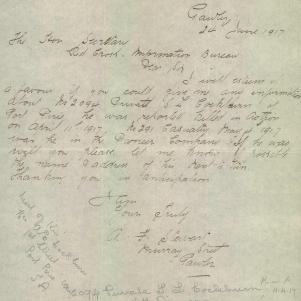 Gawler
24 June 1917
The Hon Secretary
Red Cross Information Bureau
Dear Sir
I will esteem it
a favour if you could give me any information
about No 2094 Private L L Cockburn of
Port Pirie he was reported killed in action
on April 11th 1917 No 291 Casualty May 1917
was he in the Pioneer Company If he was
would you please let me know if possible
the name & address of his next of kin
Thanking you in anticipation
I am
Yours Truly
A
Murray Street
Gawler
Port Pirie
S A
2094 Private L L Cockburn
11.4.17